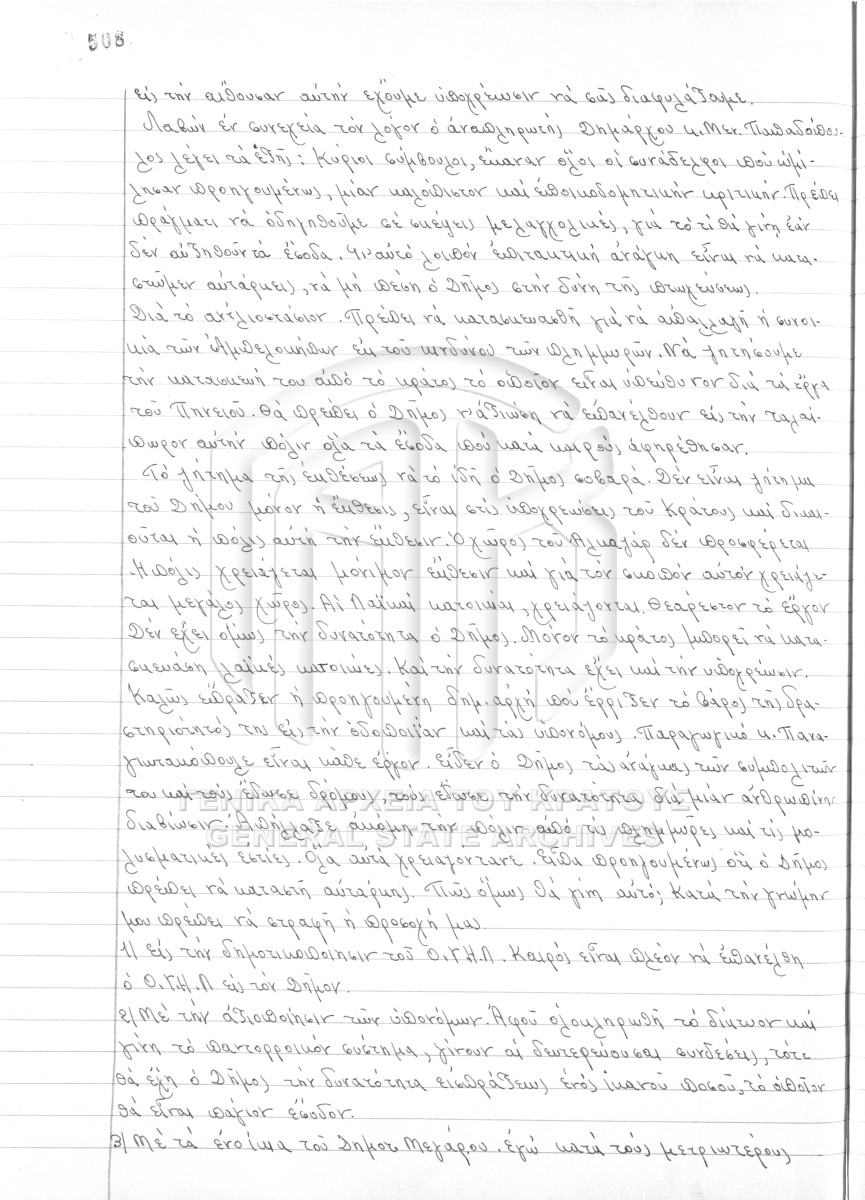 508
εἰς τὴν αἴθουσαν αὐτὴν ἔχουμε ὑποχρέωσιν νὰ σᾶς διαφυλάξωμε.
Λαβὼν ἐν συνεχείᾳ τὸν λόγον ὁ ἀναπληρωτὴς Δημάρχου κ. Μεν. Παπαδόπου-
λος λέγει τὰ ἑξῆς: Κύριοι σύμβουλοι, ἔκαναν ὅλοι οἱ συνάδελφοι ποὺ ὡμί-
λησαν προηγουμένως, μίαν καλόπιστον καὶ ἐποικοδομητικὴν κριτικήν. Πρέπει
πράγματι νὰ ὁδηγηθοῦμε σὲ σκέψεις μελαγχολικές, γιὰ τὸ τί θὰ γίνῃ ἐὰν
δὲν αὐξηθοῦν τὰ ἔσοδα. Γι' αὐτὸ λοιπὸν ἐπιτακτικὴ ἀνάγκη εἶναι νὰ κατα-
στῶμεν αὐτάρκεις, νὰ μὴ πέσῃ ὁ Δῆμος στὴν δύνη τῆς πτωχεύσεως.
Διὰ τὸ ἀντλιοστάσιον. Πρέπει νὰ κατασκευασθῇ γιὰ νὰ ἀπαλλαγῇ ἡ συνοι-
κία τῶν Ἀμπελοκήπων ἐκ τοῦ κινδύνου τῶν πλημμυρῶν. Νὰ ζητήσουμε
τὴν κατασκευή του ἀπὸ τὸ κράτος τὸ ὁποῖον εἶναι ὑπεύθυνον διὰ τὰ ἔργα
τοῦ Πηνειοῦ. Θὰ πρέπει ὁ Δῆμος ν' ἀξιώσῃ νὰ ἐπανέλθουν εἰς τὴν ταλαί-
πωρον αὐτὴν πόλιν ὅλα τὰ ἔσοδα ποὺ κατὰ καιροὺς ἀφῃρέθησαν.
Τὸ ζήτημα τῆς ἐκθέσεως νὰ τὸ ἰδῇ ὁ Δῆμος σοβαρά. Δὲν εἶναι ζήτημα
τοῦ Δήμου μόνον ἡ ἔκθεσις, εἶναι στὶς ὑποχρεώσεις τοῦ Κράτους καὶ δικαι-
οῦται ἡ πόλις αὐτὴ τὴν ἔκθεσιν. Ὁ χῶρος τοῦ Ἀλκαζὰρ δὲν προσφέρεται
Ἡ πόλις χρειάζεται μόνιμον ἔκθεσιν καὶ γιὰ τὸν σκοπὸν αὐτὸν χρειάζε-
ται μεγάλος χῶρος. Αἱ Λαϊκαὶ κατοικίαι, χρειάζονται. Θεάρεστον τὸ ἔργον
Δὲν ἔχει ὅμως τὴν δυνατότητα ὁ Δῆμος. Μόνον τὸ κράτος μπορεῖ νὰ κατα-
σκευάσῃ λαϊκὲς κατοικίες. Καὶ τὴν δυνατότητα ἔχει καὶ τὴν ὑποχρέωσιν.
Καλῶς ἔπραξεν ἡ προηγουμένη δημ. ἀρχὴ ποὺ ἔρριξεν τὸ βάρος τῆς δρα-
στηριότητός της εἰς τὴν ὁδοποιΐαν καὶ τοὺς ὑπονόμους. Παραγωγικὸ κ. Πανα-
γιωτακόπουλε εἶναι κάθε ἔργον. Εἶδεν ὁ Δῆμος τὰς ἀνάγκας τῶν συμπολιτῶν
του καὶ τοὺς ἔδωσε δρόμους, τοὺς ἔδωσε τὴν δυνατότητα διὰ μιὰν ἀνθρωπίνην
διαβίωσιν. Ἀπήλλαξε ἀκόμη τὴν πόλιν ἀπὸ τὶς πλημμύρες καὶ τὶς μο-
λυσματικὲς ἑστίες. Ὅλα αὐτὰ χρειάζονταν. Εἶπα προηγουμένως ὅτι ὁ Δῆμος
πρέπει νὰ καταστῇ αὐτάρκης. Πῶς ὅμως θὰ γίνῃ αὐτό; Κατὰ τὴν γνώμην
μου πρέπει νὰ στραφῇ ἡ προσοχή μας.
1/ εἰς τὴν δημοτικοποίησιν τοῦ Ο.Υ.Η.Λ. Καιρὸς εἶναι πλέον νὰ ἐπανέλθῃ
ὁ Ο.Υ.Η.Λ εἰς τὸν Δῆμον.
2/ Μὲ τὴν ἀξιοποίησιν τῶν ὑπονόμων. Ἀφοῦ ὁλοκληρωθῇ τὸ δίκτυον καὶ
γίνῃ τὸ παντορροϊκὸν σύστημα, γίνουν αἱ δευτερεύουσαι συνδέσεις, τότε
θὰ ἔχῃ ὁ Δῆμος τὴν δυνατότητα εἰσπράξεως ἑνὸς ἱκανοῦ ποσοῦ, τὸ ὁποῖον
θὰ εἶναι πάγιον ἔσοδον.
3/ Μὲ τὰ ἐνοίκια τοῦ Δημοτ. Μεγάρου. ἐγὼ κατὰ τοὺς μετριωτέρους
ΓΕΝΙΚΑ ΑΡΧΕΙΑ ΤΟΥ ΚΡΑΤΟΥΣ
GENERAL STATE ARCHIVES